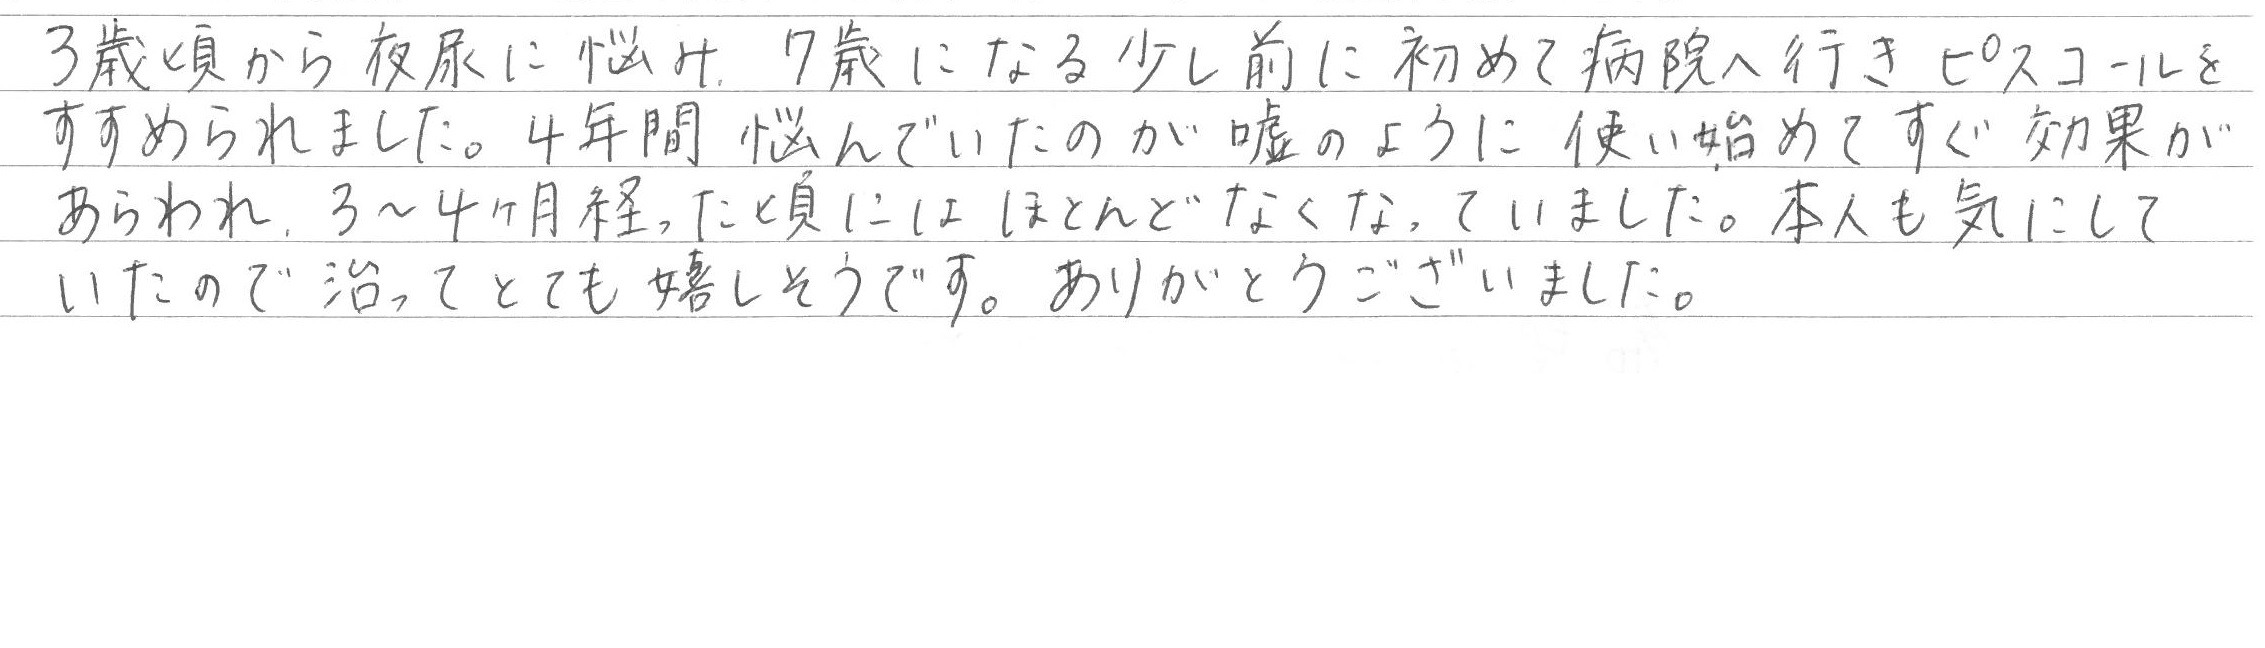 3歳頃から夜尿に悩み、7歳になる少し前に初めて病院へ行きピスコールを
すすめられました。4年間悩んでいたのが嘘のように使い始めてすぐ効果が
あらわれ、3～4ヶ月経った頃にはほとんどなくなっていました。本人も気にして
いたので治ってとても嬉しそうです。ありがとうございました。